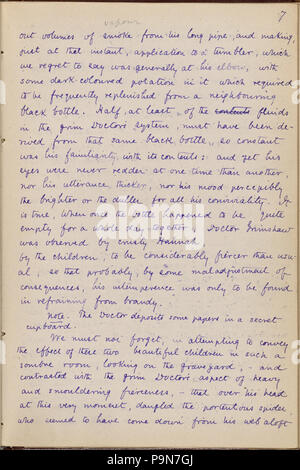 7
vapour
out volumes of smoke from his long pipe, and making,
just at that instant, application to a tumbler, which
we regret to say was generally at his elbow, with
some dark-coloured potation in it which required
to be frequently replenished from a neighbouring
black bottle. Half, at least, of the contents fluids
in the grim Doctor's system, must have been de-
rived from that same black bottle, so constant
was his familiarity with its contents: and yet his
eyes were never redder at one time than another,
nor his utterance thicker, nor his mood perceptibly
the brighter or the duller for all his conviviality. It
is true, when once the bottle happened to be quite
empty for a whole day together, Doctor Grimshaw
was observed by crusty Hannah
by the children, to be considerably fiercer than usu-
al; so that probably, by some maladjustment of
consequences, his intemperance was only to be found
in refraining from brandy.
Note. The Doctor deposits some papers in a secret
cupboard.
We must not forget, in attempting to convey
the effect of these two beautiful children in such a
sombre room, looking on the graveyard, - and
contrasted with the grim Doctor's aspect of heavy
and smouldering fierceness, - that over his head
at this very moment, dangled the portentous spider,
who seemed to have come down from his web aloft
a
alamy
Image ID: P9N7GJ
www.alamy.com